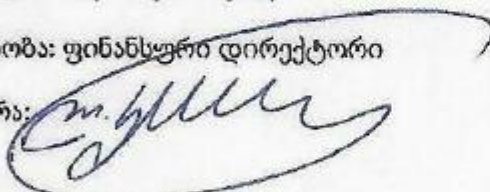 ობა: ფინანსური დირექტორი
რა: